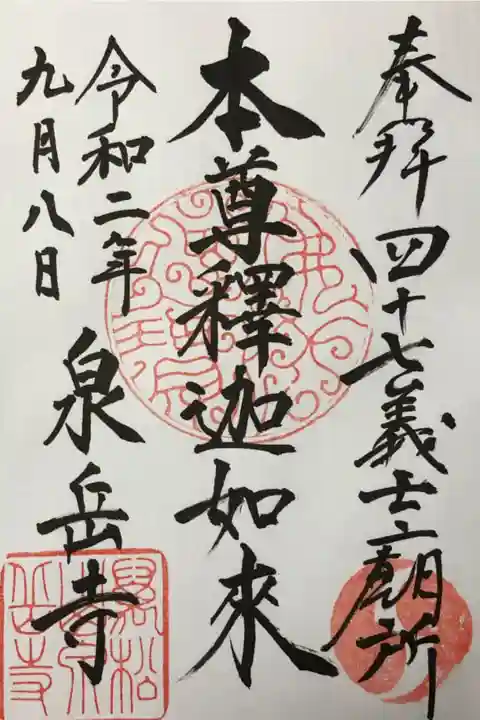 奉拝 四十七義士廟所
本尊釋迦如來
令和二年
九月八日
泉岳寺
萬松山泉岳寺